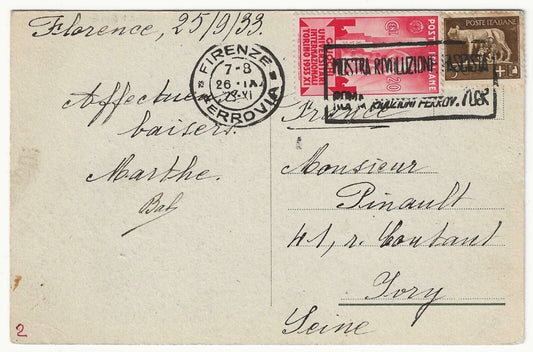 Florence, 25/9/33.
FIRENZE
7-8
26·IX
33-XI
FERROVIA
POSTE ITALIANE
GIUOCHI
UNIVERSITARI
INTERNAZIONALI
TORINO 1933 XI
20
POSTE ITALIANE
MOSTRA RIVOLUZIONE FASCISTA
RIDUZIONI FERROV. 70%
France
Affectueux
baisers.
Marthe.
Monsieur
Pinault
41, r. Coutant
Ivry
Seine
2